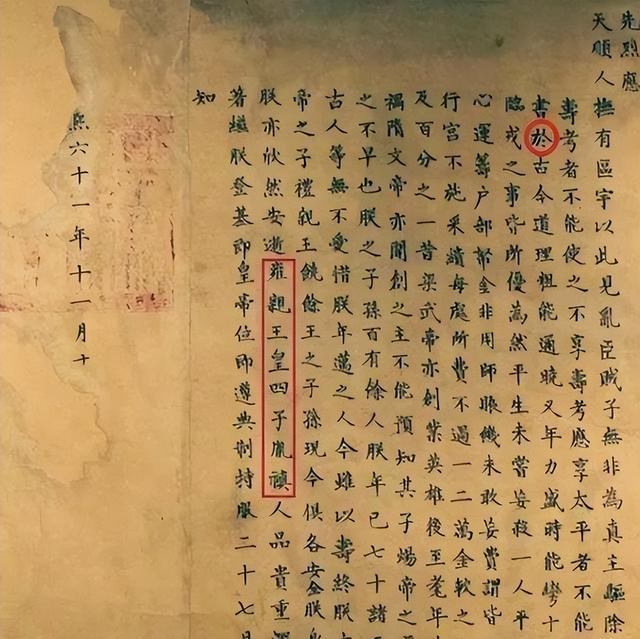 先烈應
天順人撫有區宇以此見亂臣賊子無非為真主驅除
壽考者不能使之不享壽考應享太平者不能
書於古今道理粗能通曉又年力盛時能彎十
臨戎之事皆所優為然平生未嘗妄殺一人平
心運籌戶部帑金非用師賑饑未敢妄費謂皆
行宮不施采繢每處所費不過一二萬金較之
及百分之一昔梁武帝亦創業英雄後至耄年
禍隋文帝亦開創之主不能預知其子煬帝之
之不早也朕之子孫百有餘人朕年已七十諸
古人等無不愛惜朕年邁之人今雖以壽終朕
帝之子禮親王饒餘王之子孫現今俱各安全朕
朕亦欣然安逝雍親王皇四子胤禛人品貴重
著繼朕登基即皇帝位即遵典制持服二十七
知
熙六十一年十一月十